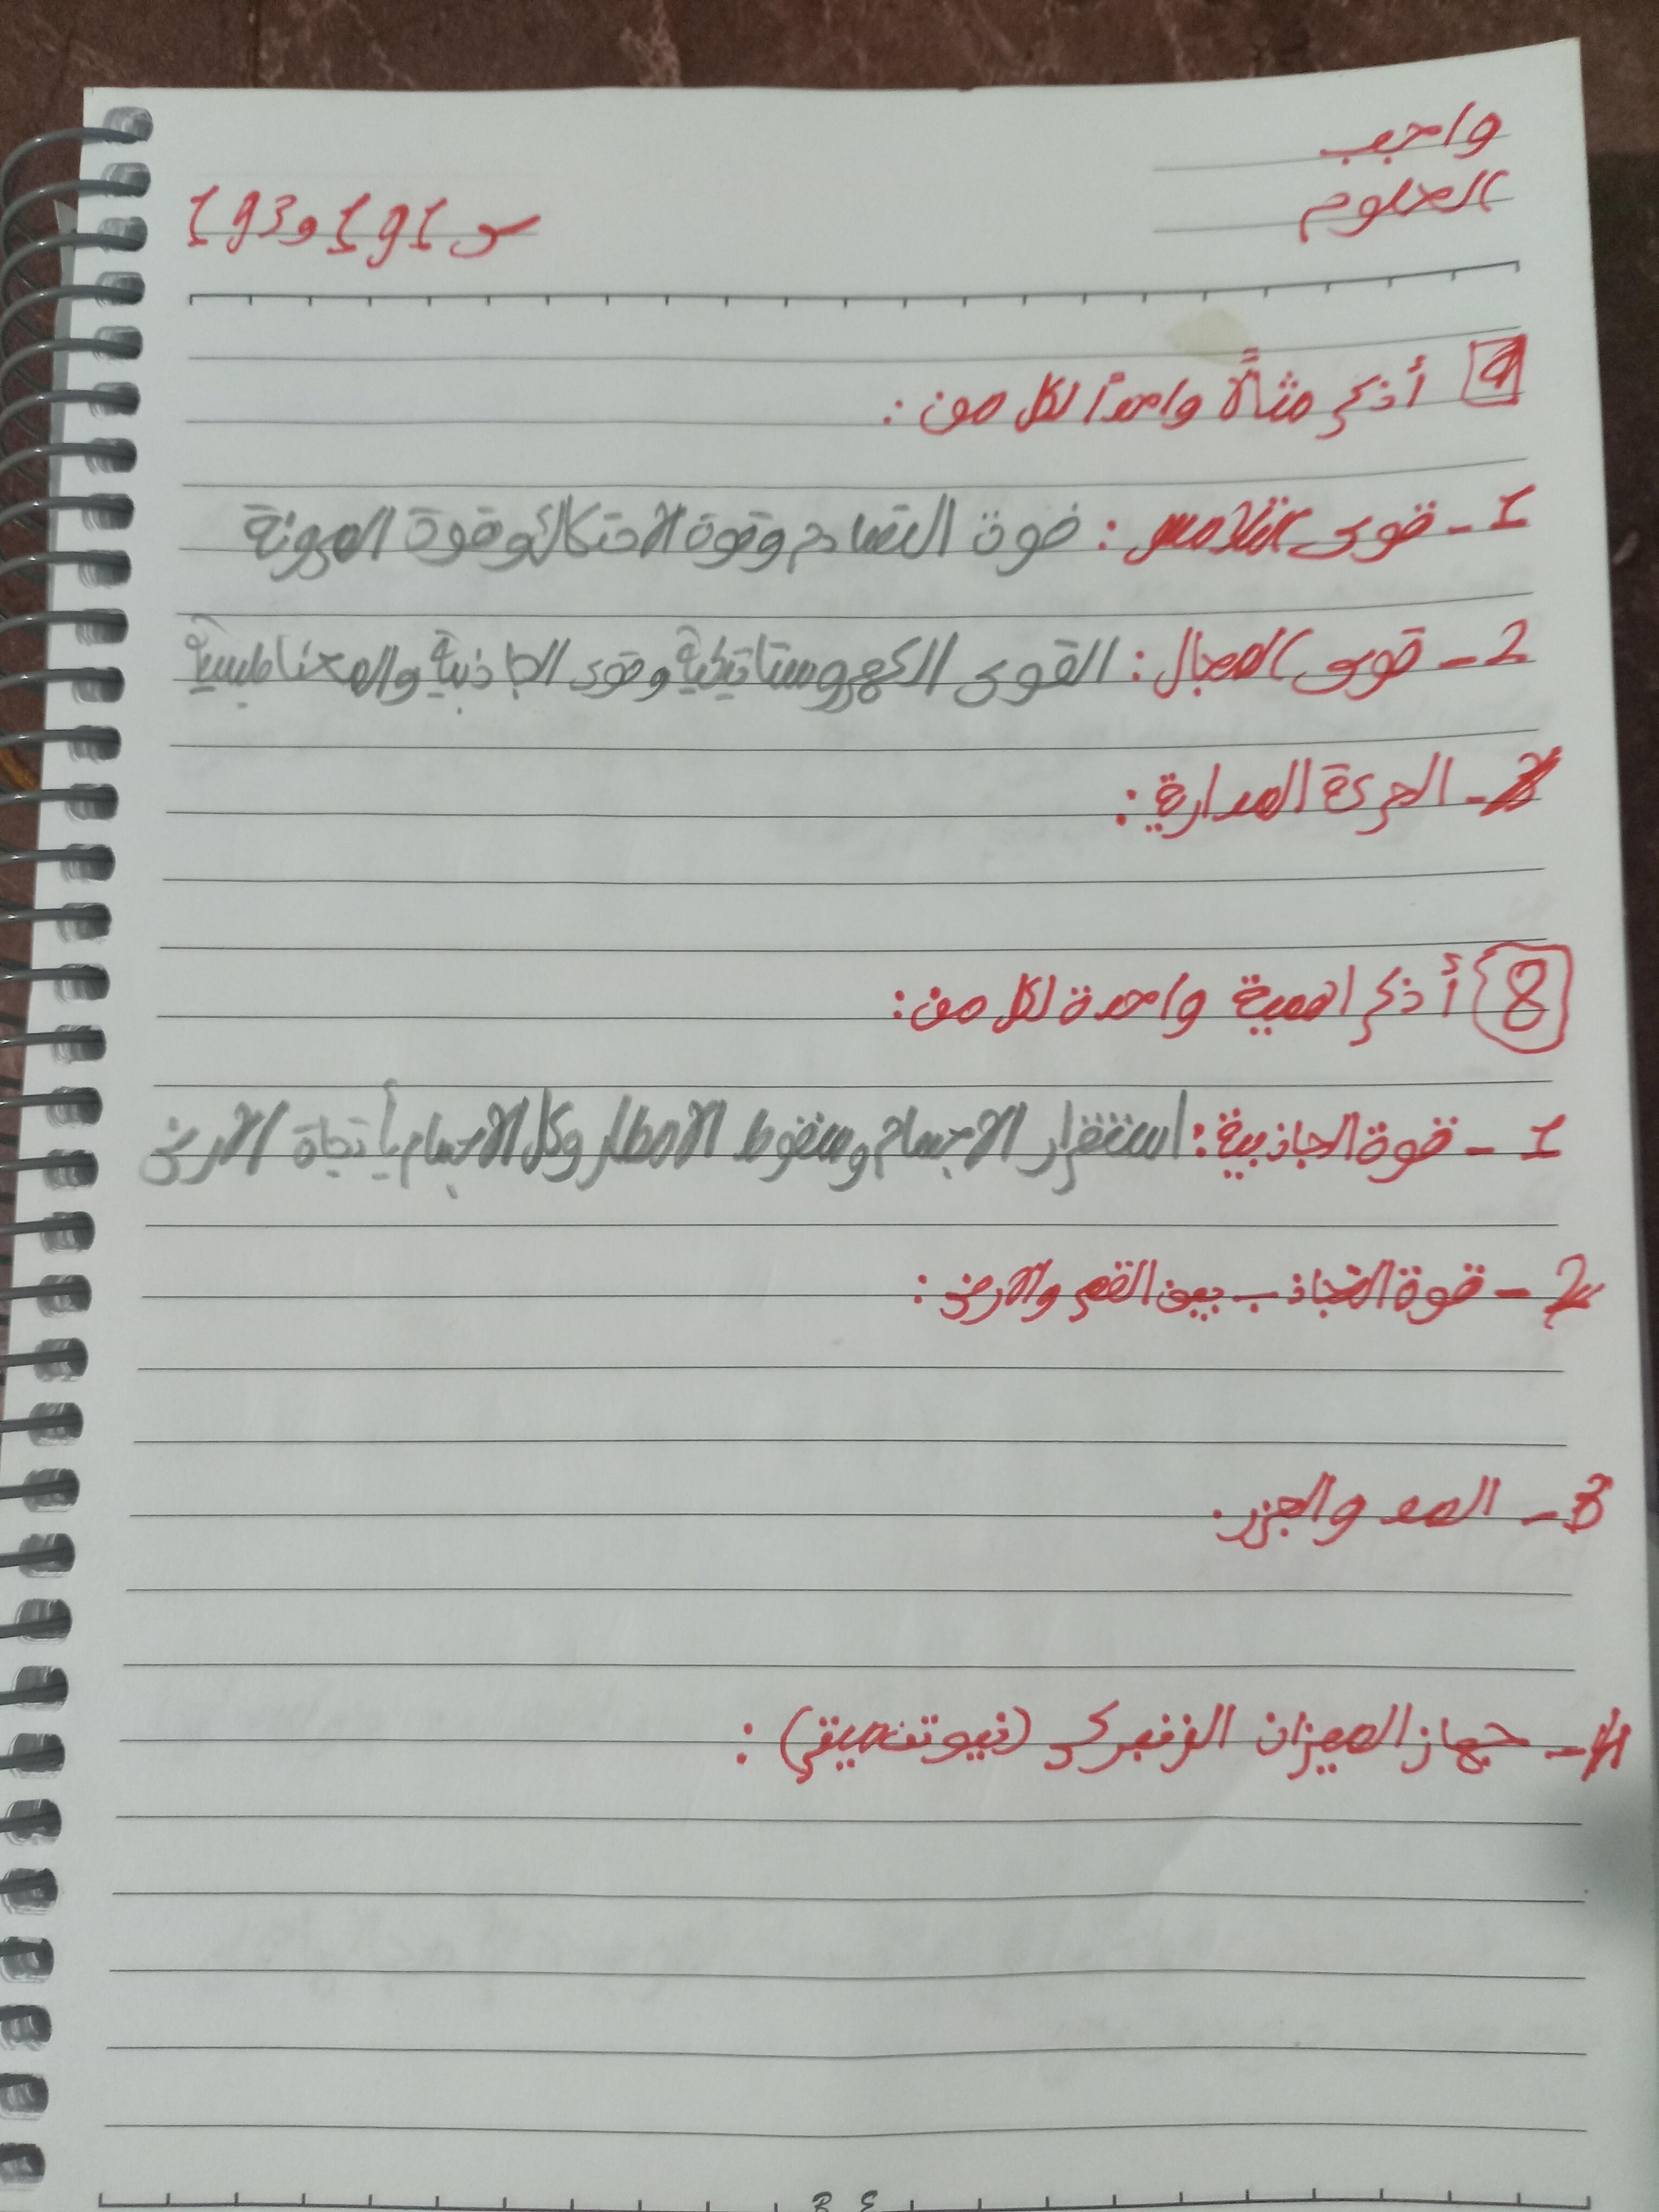 واجب
العلوم
س 191 و 193
9 أذكر مثالًا واحدًا لكل من :
1 - قوى التلامس : قوة التصادم وقوة الاحتكاك وقوة المرونة
2 - قوى المجال : القوى الكهروستاتيكية وقوى الجاذبية والمغناطيسية
3 - الحركة المدارية :
8 أذكر اهمية واحدة لكل من :
1 - قوة الجاذبية : استقرار الاجسام وسقوط الامطار وكل الاجسام بأتجاة الارض
2 - قوة التجاذب بين القمر والارض :
3 - المد والجزر .
4 - جهاز الميزان الزنبركي (نيوتنميتر) :